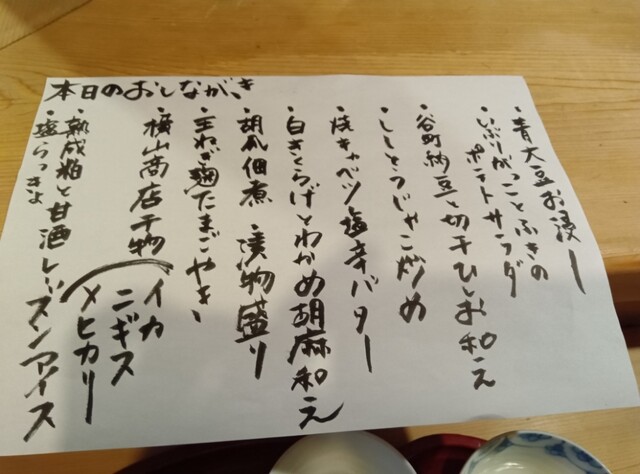 本日のおしながき
・青大豆お浸し
・いぶりがっことふきの
ポテトサラダ
・谷町納豆と切干ひしお和え
・ししとうじゃこ炒め
・焼キャベツ塩辛バター
・白きくらげとわかめ胡麻和え
・胡瓜佃煮 ・漬物盛り
・玉ねぎ麹たまごやき
・横山商店干物(イカ
ニギス
メヒカリ
・熟成粕と甘酒レーズンアイス
・塩らっきょ